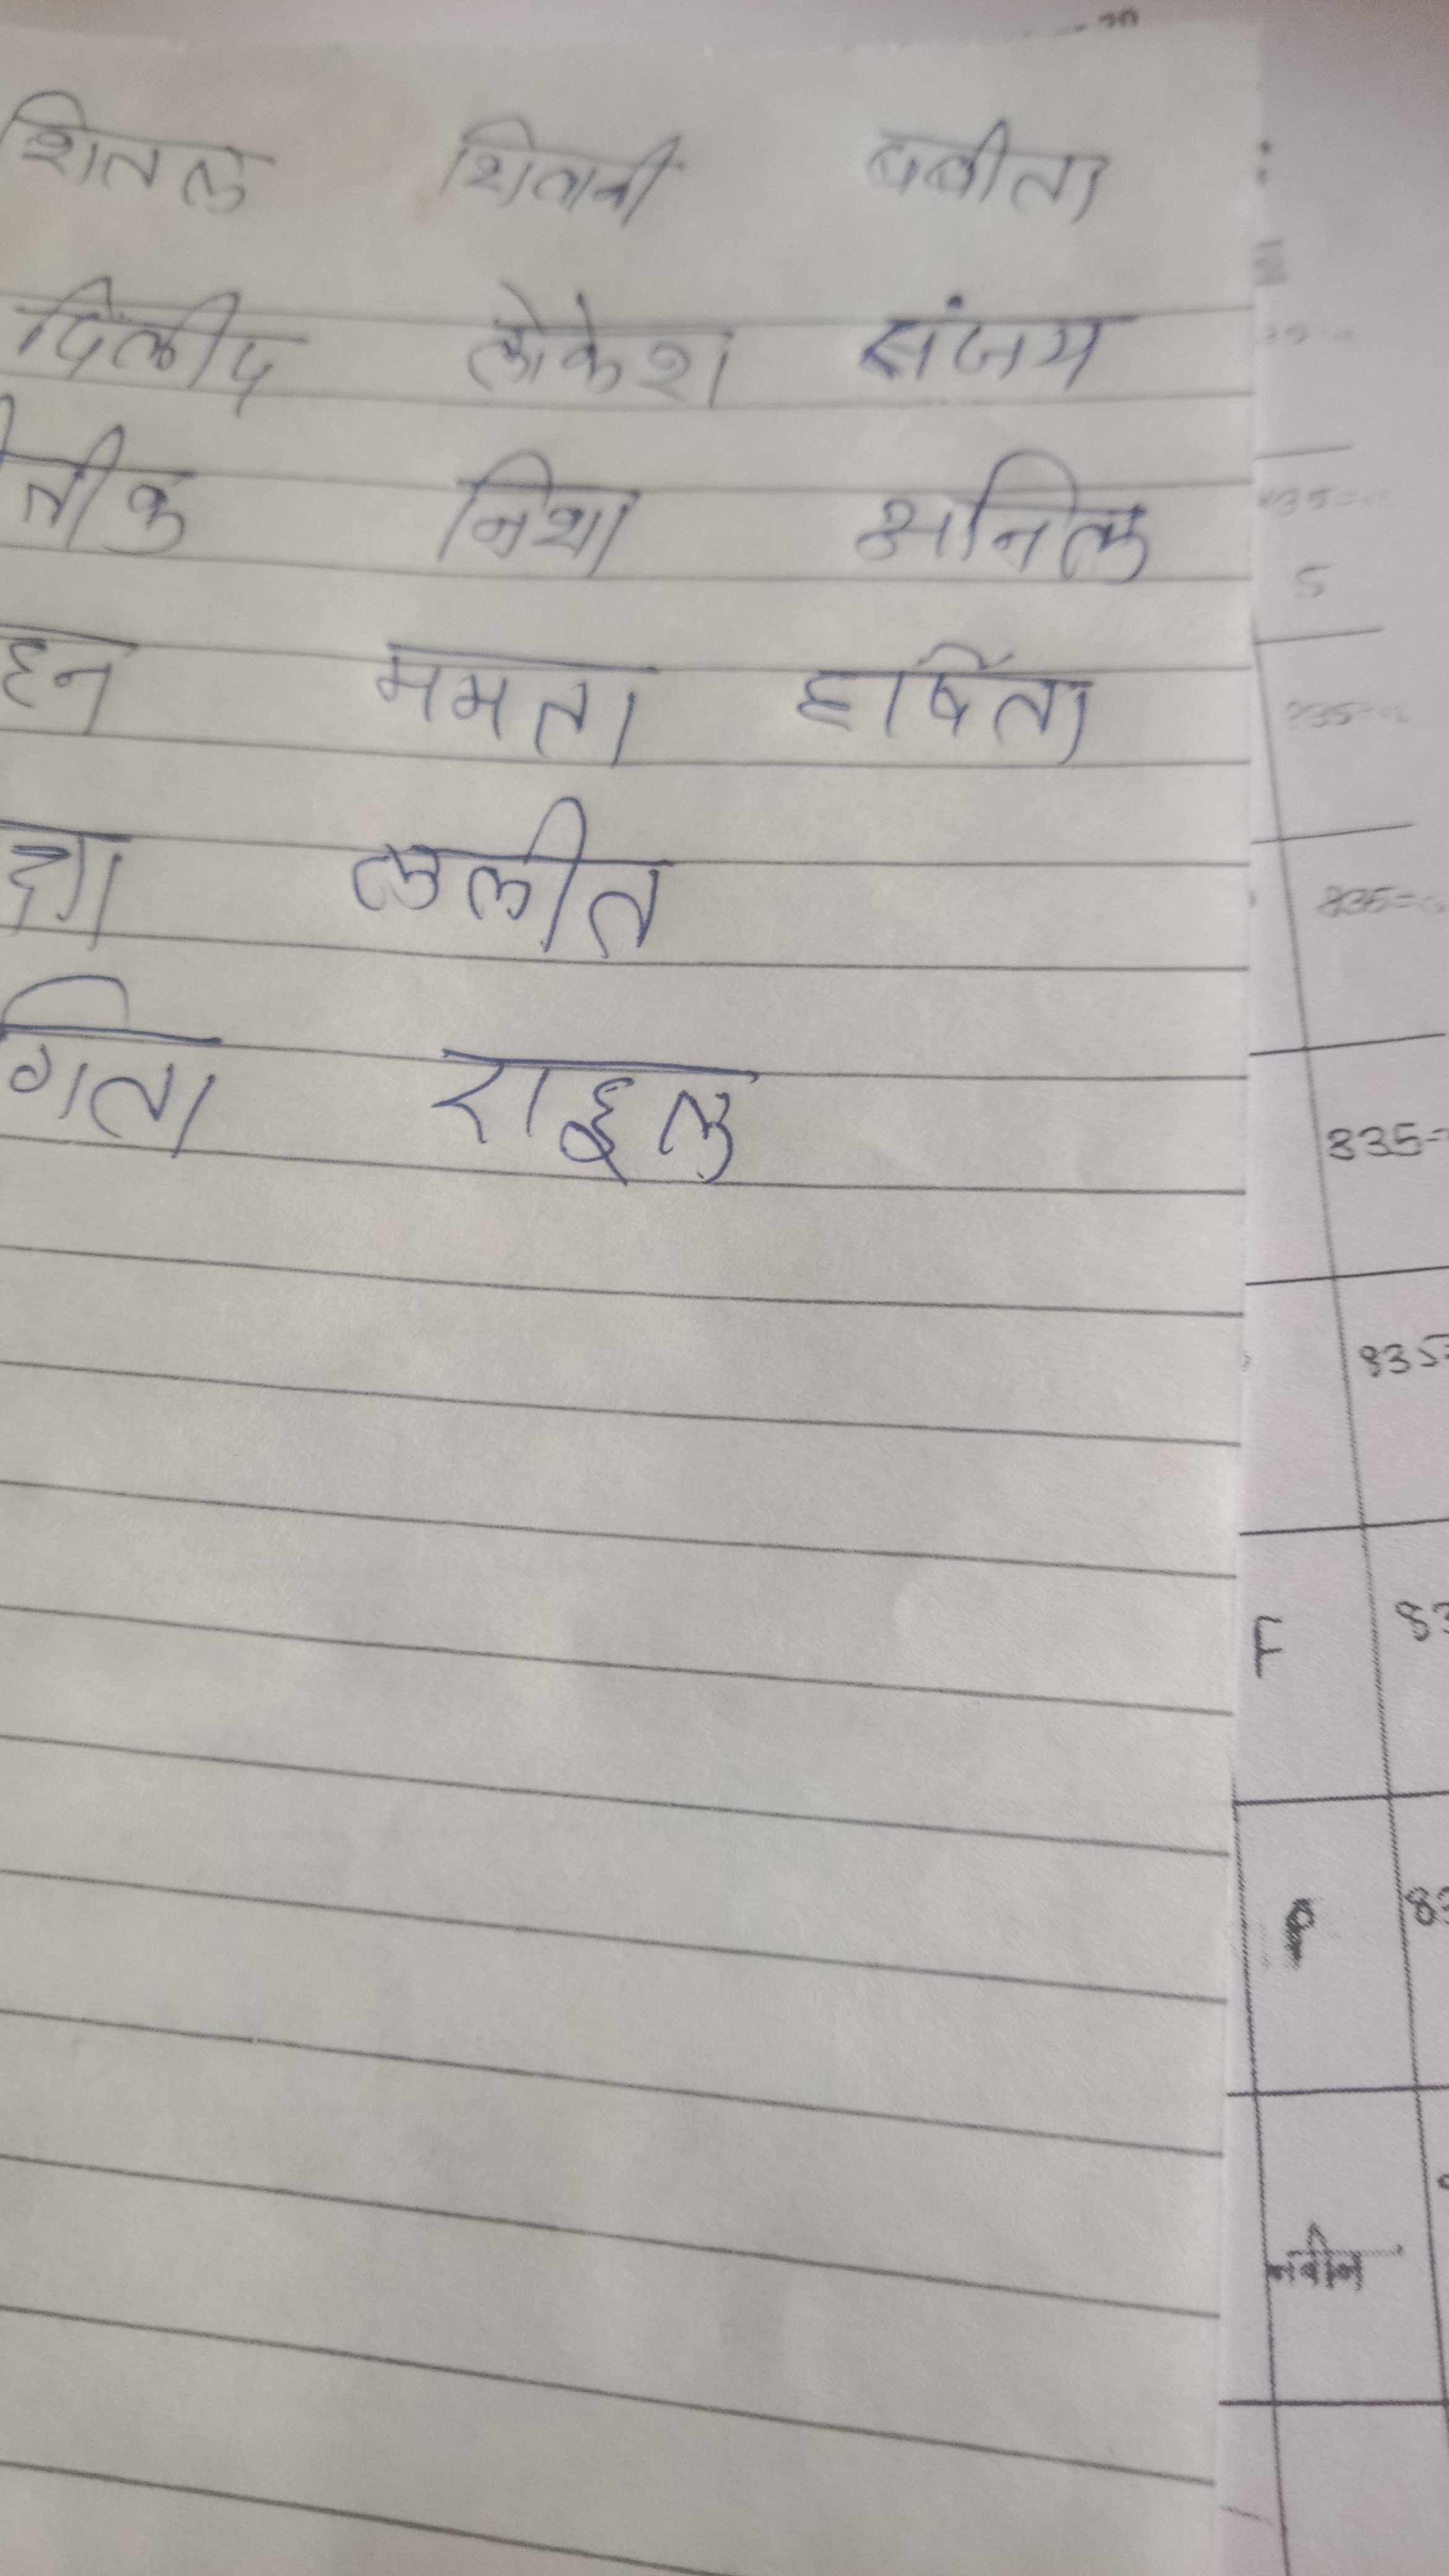 शितल शिवानी बबीता
दिलीप लोकेश संजय
तीक निशा अनिल
हन ममता हर्षिता
क्षा ललीत
गिता राहुल
835=
835=
F 83
P 83
नवीन